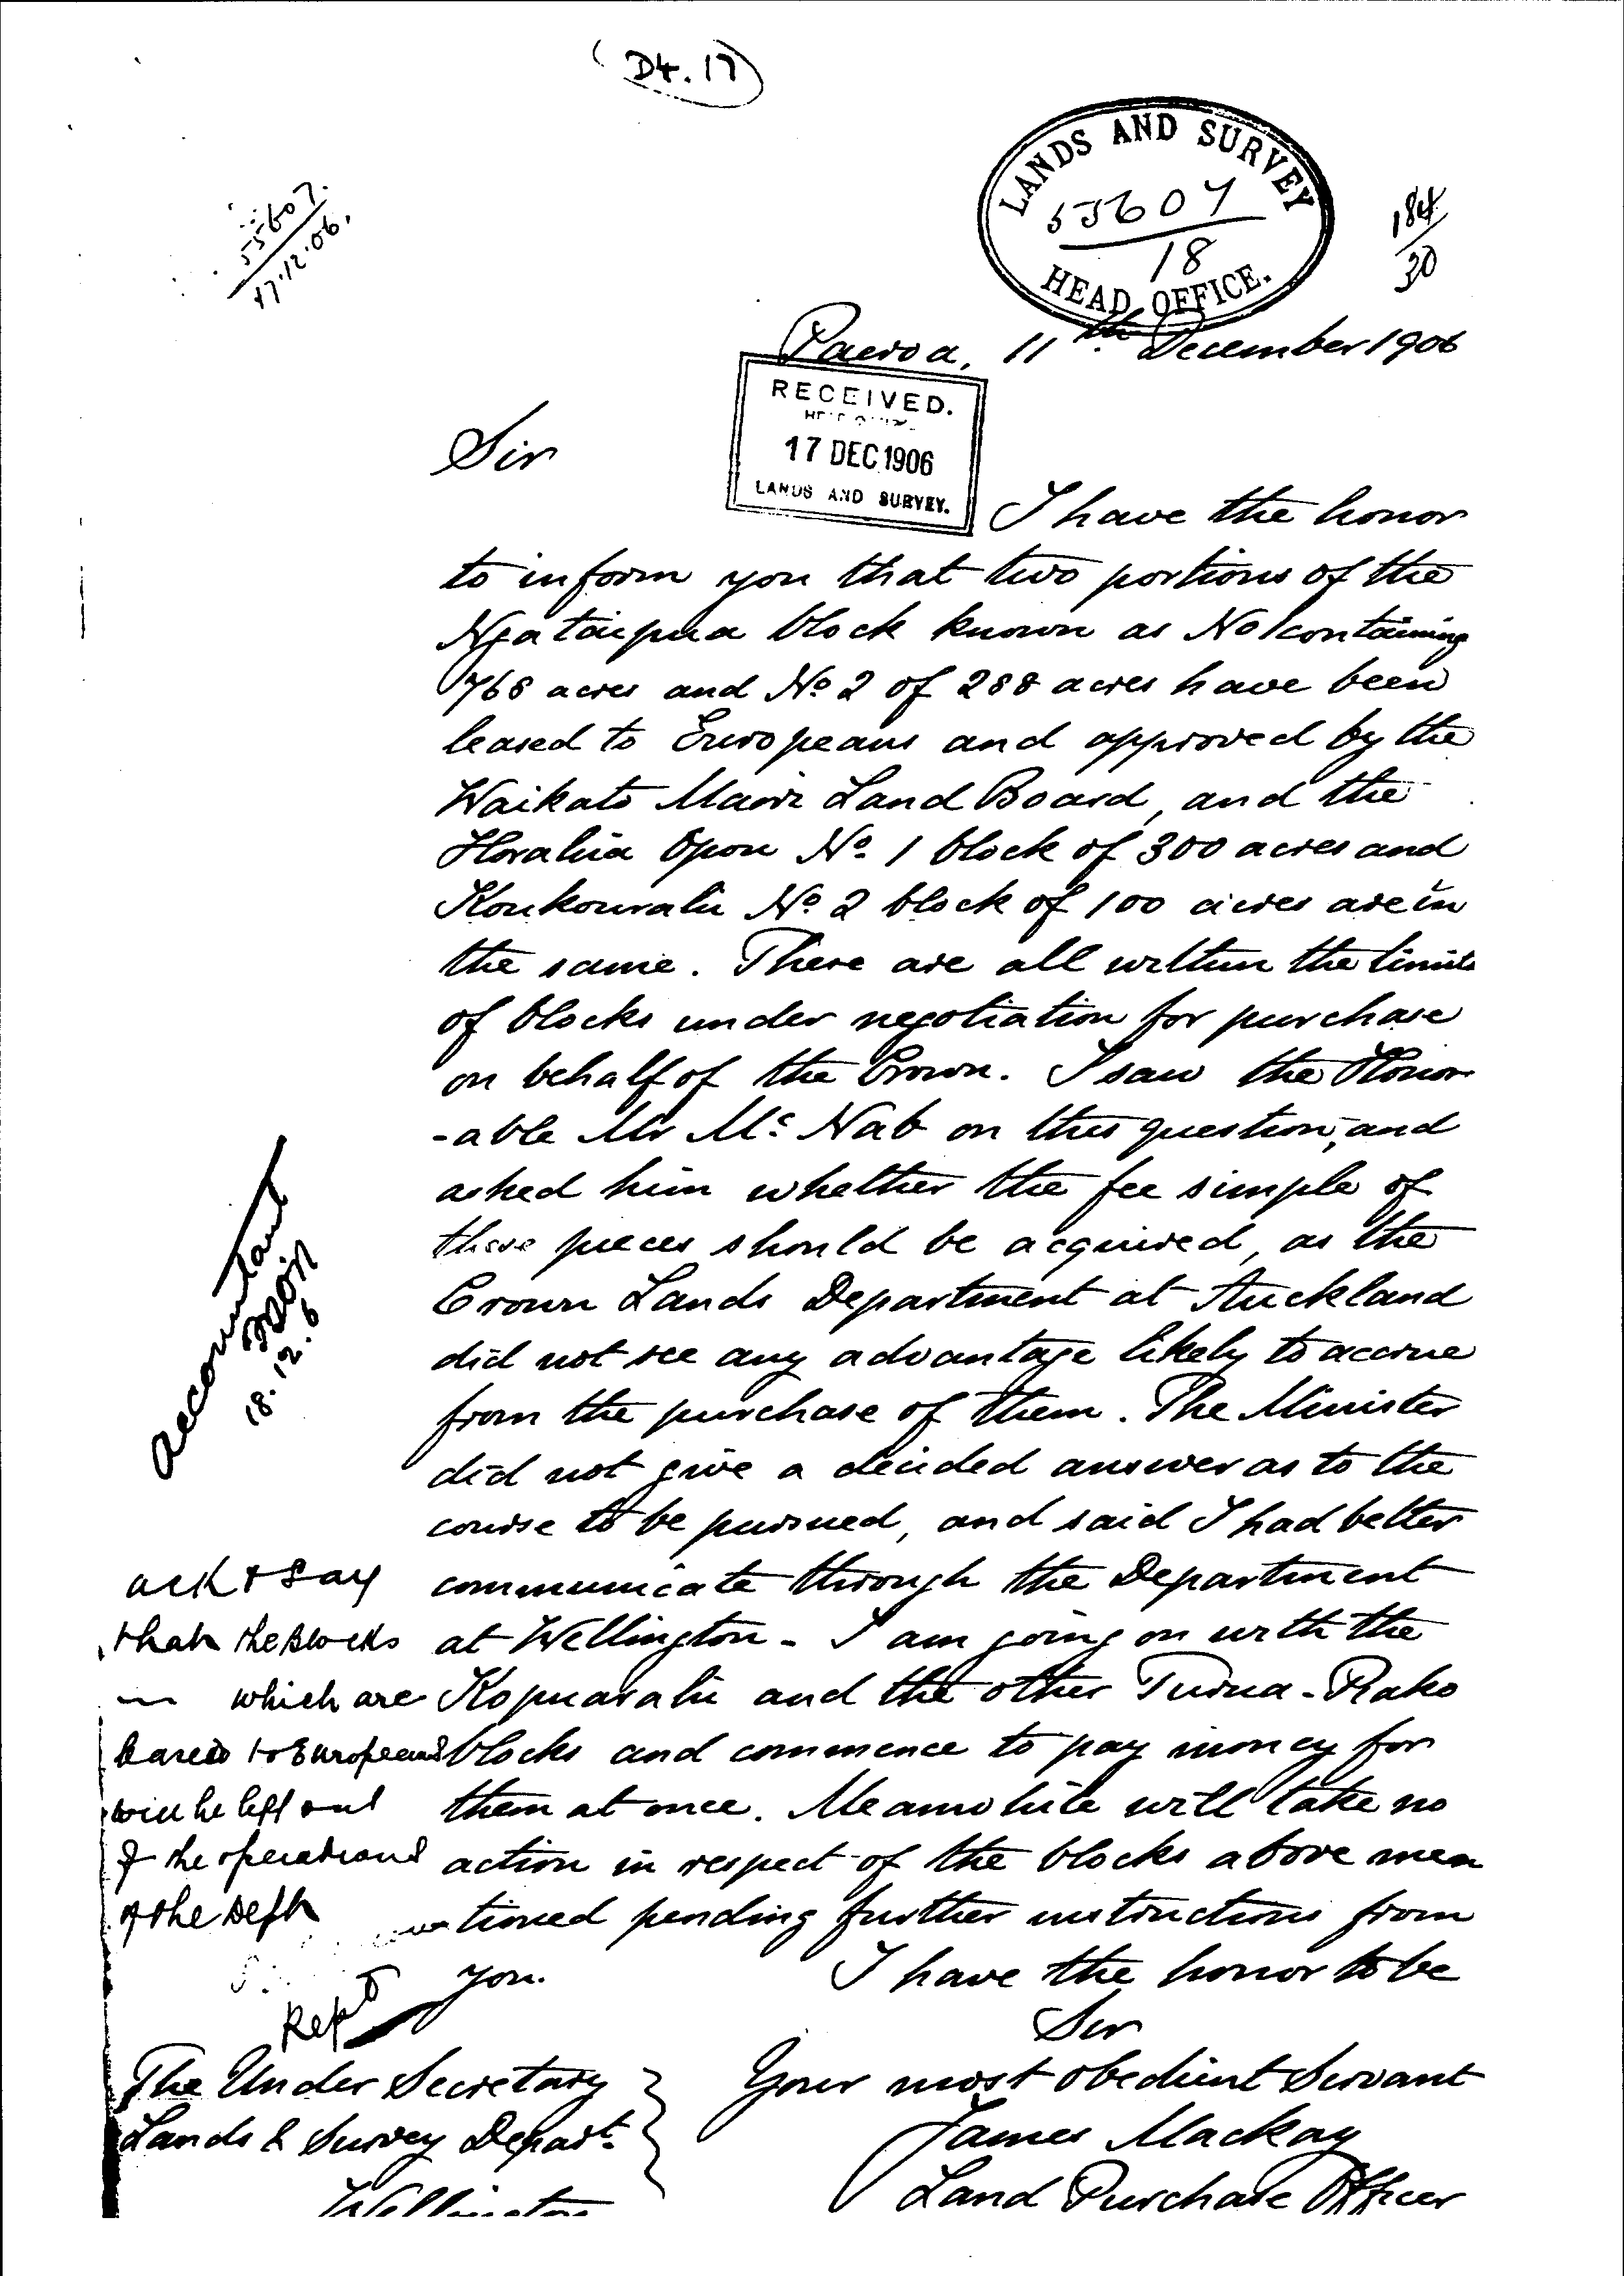 (D4.17)
LANDS AND SURVEY
55607
18
HEAD OFFICE.
55607.
17.12.06.
184
30
Paeroa, 11th December 1906
RECEIVED.
17 DEC 1906
LANDS AND SURVEY.
Sir
I have the honor
to inform you that two portions of the
Ngataipua block known as No 1 containing
768 acres and No. 2 of 288 acres have been
leased to Europeans and approved by the
Waikato Maori Land Board, and the
Horahia Opou No. 1 block of 300 acres and
Koukourahi No. 2 block of 100 acres are in
the same. These are all within the limits
of blocks under negotiation for purchase
on behalf of the Crown. I saw the Honor
-able Mr Mc. Nab on this question, and
asked him whether the fee simple of
these pieces should be acquired, as the
Crown Lands Department at Auckland
did not see any advantage likely to accrue
from the purchase of them. The Minister
did not give a decided answer as to the
course to be pursued, and said I had better
communicate through the Department
at Wellington - I am going on with the
Kopuarahi and the other Turua-Rako
blocks and commence to pay money for
them at once. Meanwhile will take no
action in respect of the blocks above men
tioned pending further instructions from
you.
I have the honor to be
Sir
Your most obedient Servant
James Mackay
Land Purchase Officer
The Under Secretary
Lands & Survey Depart.
Wellington
Accountant
18.12.6
ack & say
that the Blocks
which are
leased to Europeans
will be left out
of the operations
of the Dept
Repd